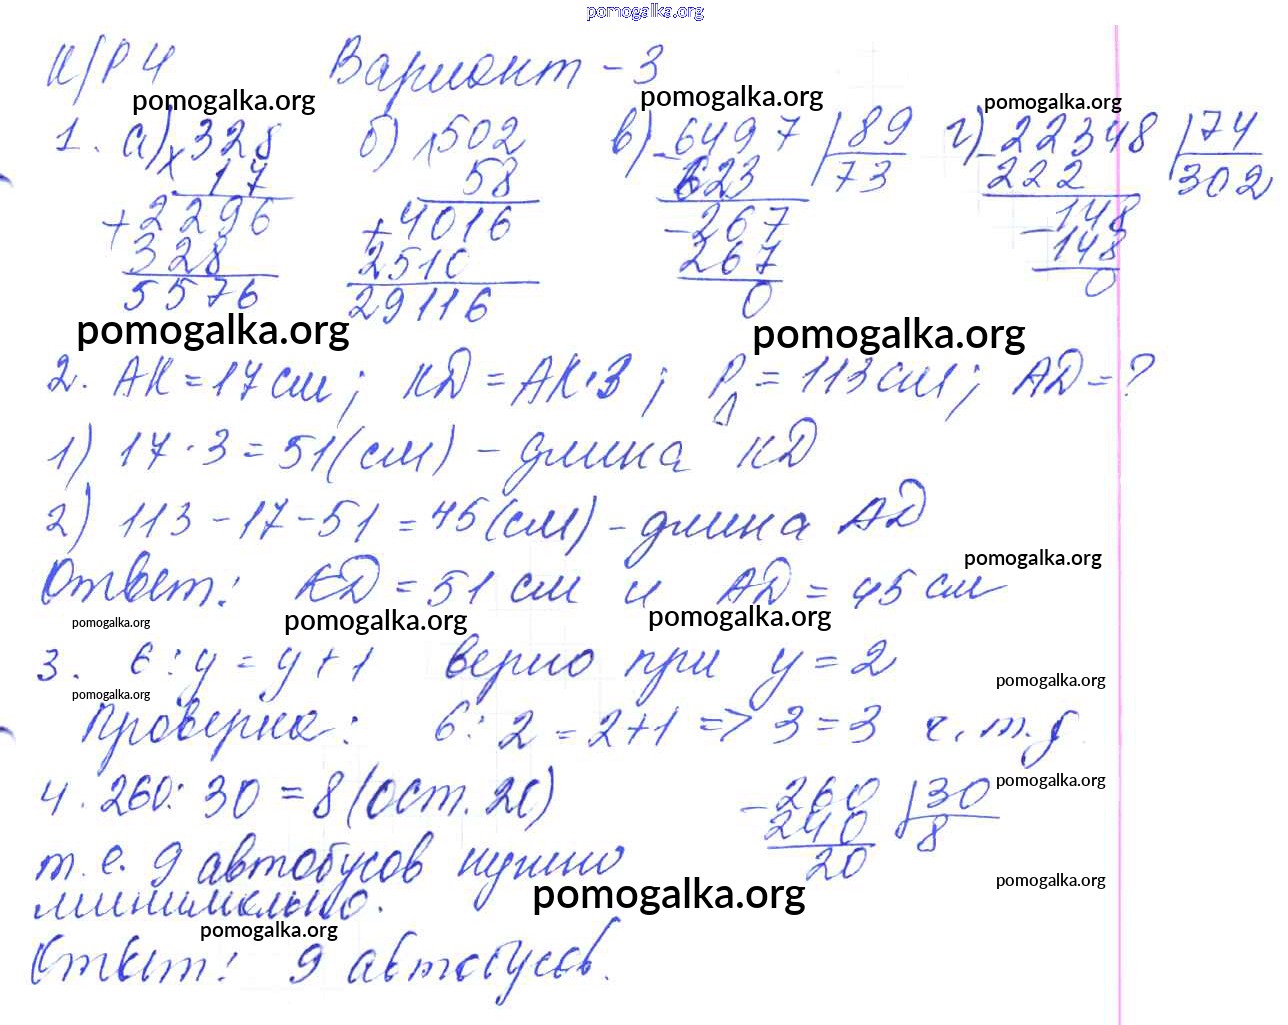 pomogalka.org
К/Р 4 Вариант - 3
pomogalka.org pomogalka.org pomogalka.org
1. а) × 328 б) × 502 в) - 6497 | 89 г) - 22348 | 74
17 58 623 73 222 302
+ 2296 + 4016 - 267 - 148
328 2510 267 148
5576 29116 0 0
pomogalka.org pomogalka.org
2. АК = 17 см ; КD = АК·3 ; P△ = 113 см ; АD = ?
1) 17 · 3 = 51 (см) - длина КD
2) 113 - 17 - 51 = 45 (см) - длина АD
pomogalka.org
Ответ: КD = 51 см и АD = 45 см
pomogalka.org pomogalka.org pomogalka.org
3. 6 : y = y + 1 верно при y = 2
pomogalka.org pomogalka.org
Проверка: 6 : 2 = 2+1 => 3 = 3 ч. т. д
4. 260 : 30 = 8 (ост. 20) - 260 | 30
pomogalka.org
240 8
т. е. 9 автобусов нужно 20
минимально. pomogalka.org pomogalka.org
pomogalka.org
Ответ: 9 автобусов.